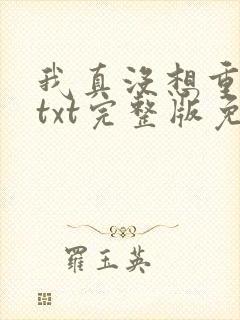 我真没想重
txt完整版免
羅玉英